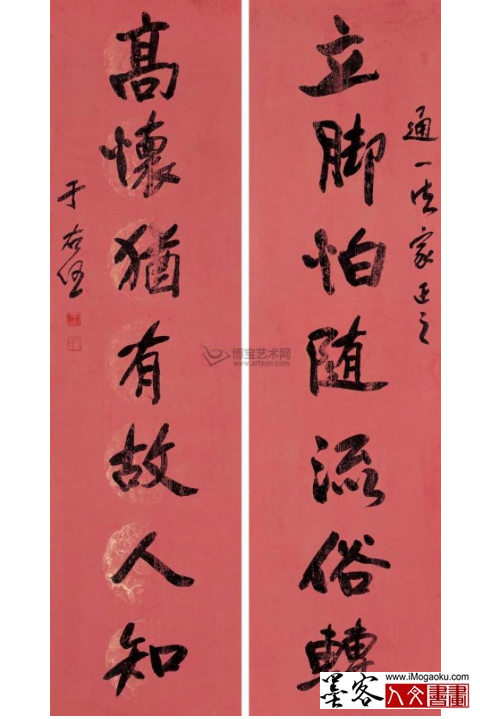 通一法家正之
立脚怕随流俗轉
高懷猶有故人知
于右任
博宝艺术网
www.artxun.com
www.iMogaoku.com
墨客人文書畫